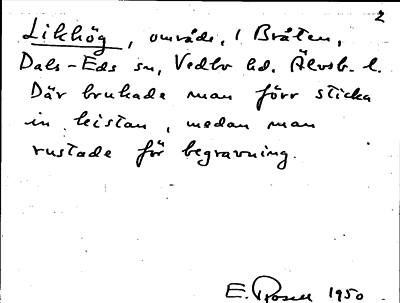 2
Likhög, område, i Bråten,
Dals-Eds sn, Vedbo hd. Älvsb. l.
Där brukade man förr sticka
in kistan, medan man
rustade för begravning.
E. Rosell 1950